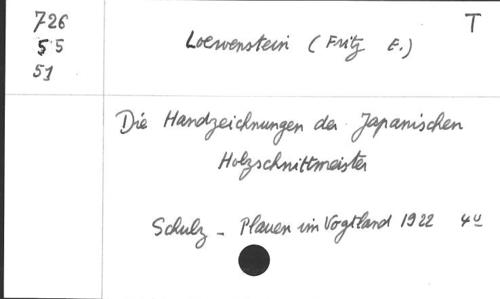 726
55
51
T
Loewenstein (Fritz E.)
Die Handzeichnungen der Japanischen
Holzschnittmeister
Schulz - Plauen im Vogtland 1922 4º